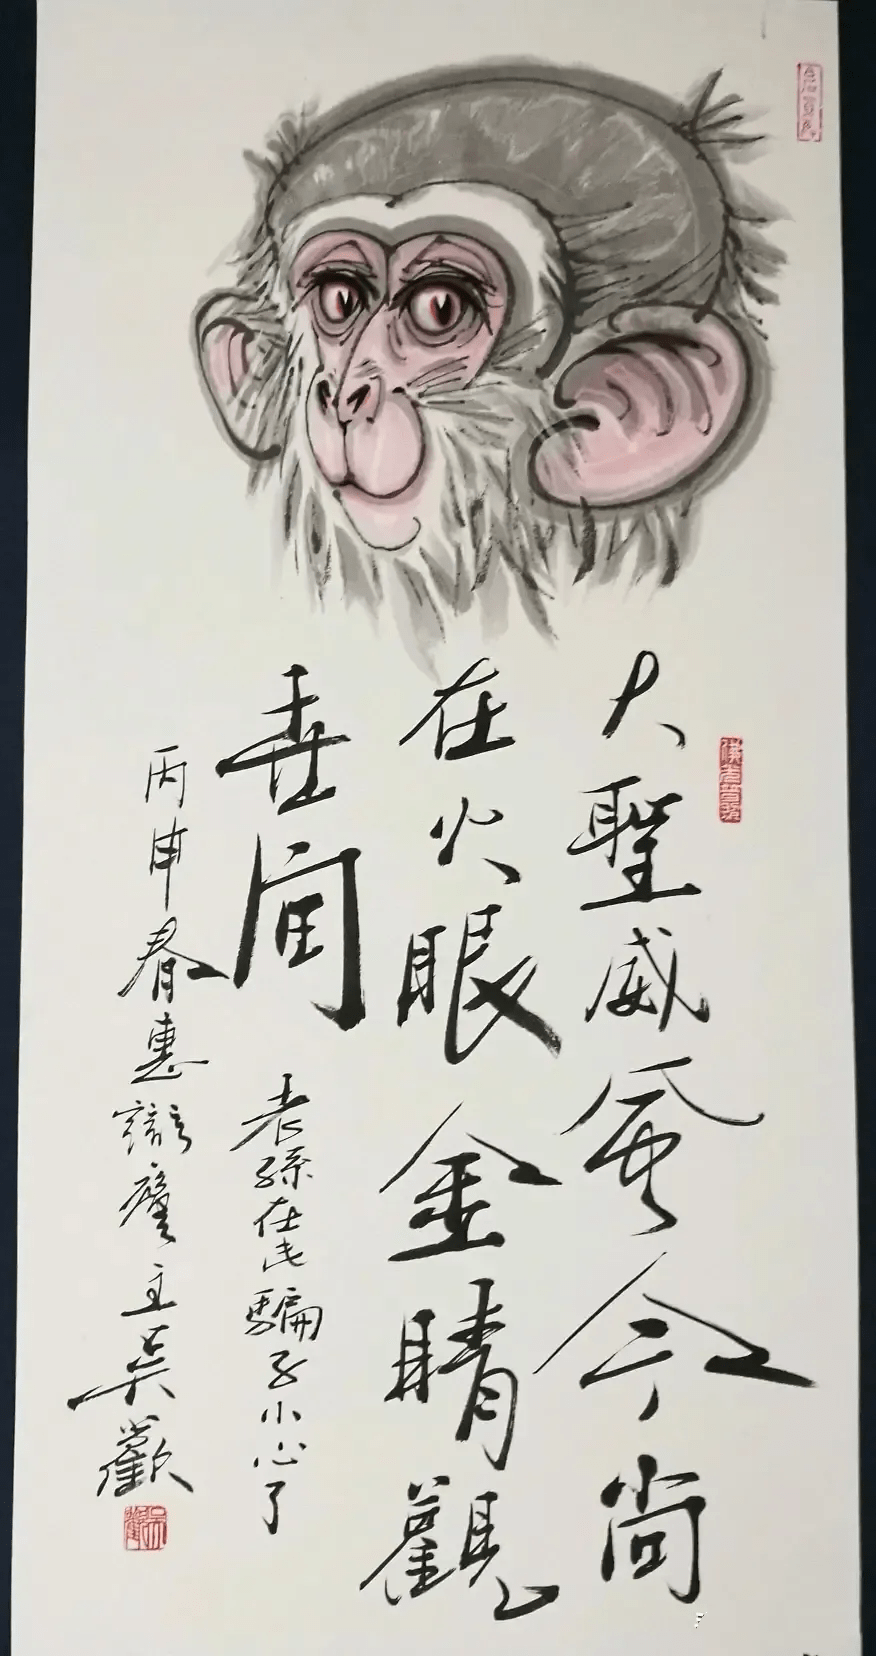 大聖威風今尚
在火眼金睛觀
世間
老孫在此騙子小心了
丙申春惠主吳歡
吳歡